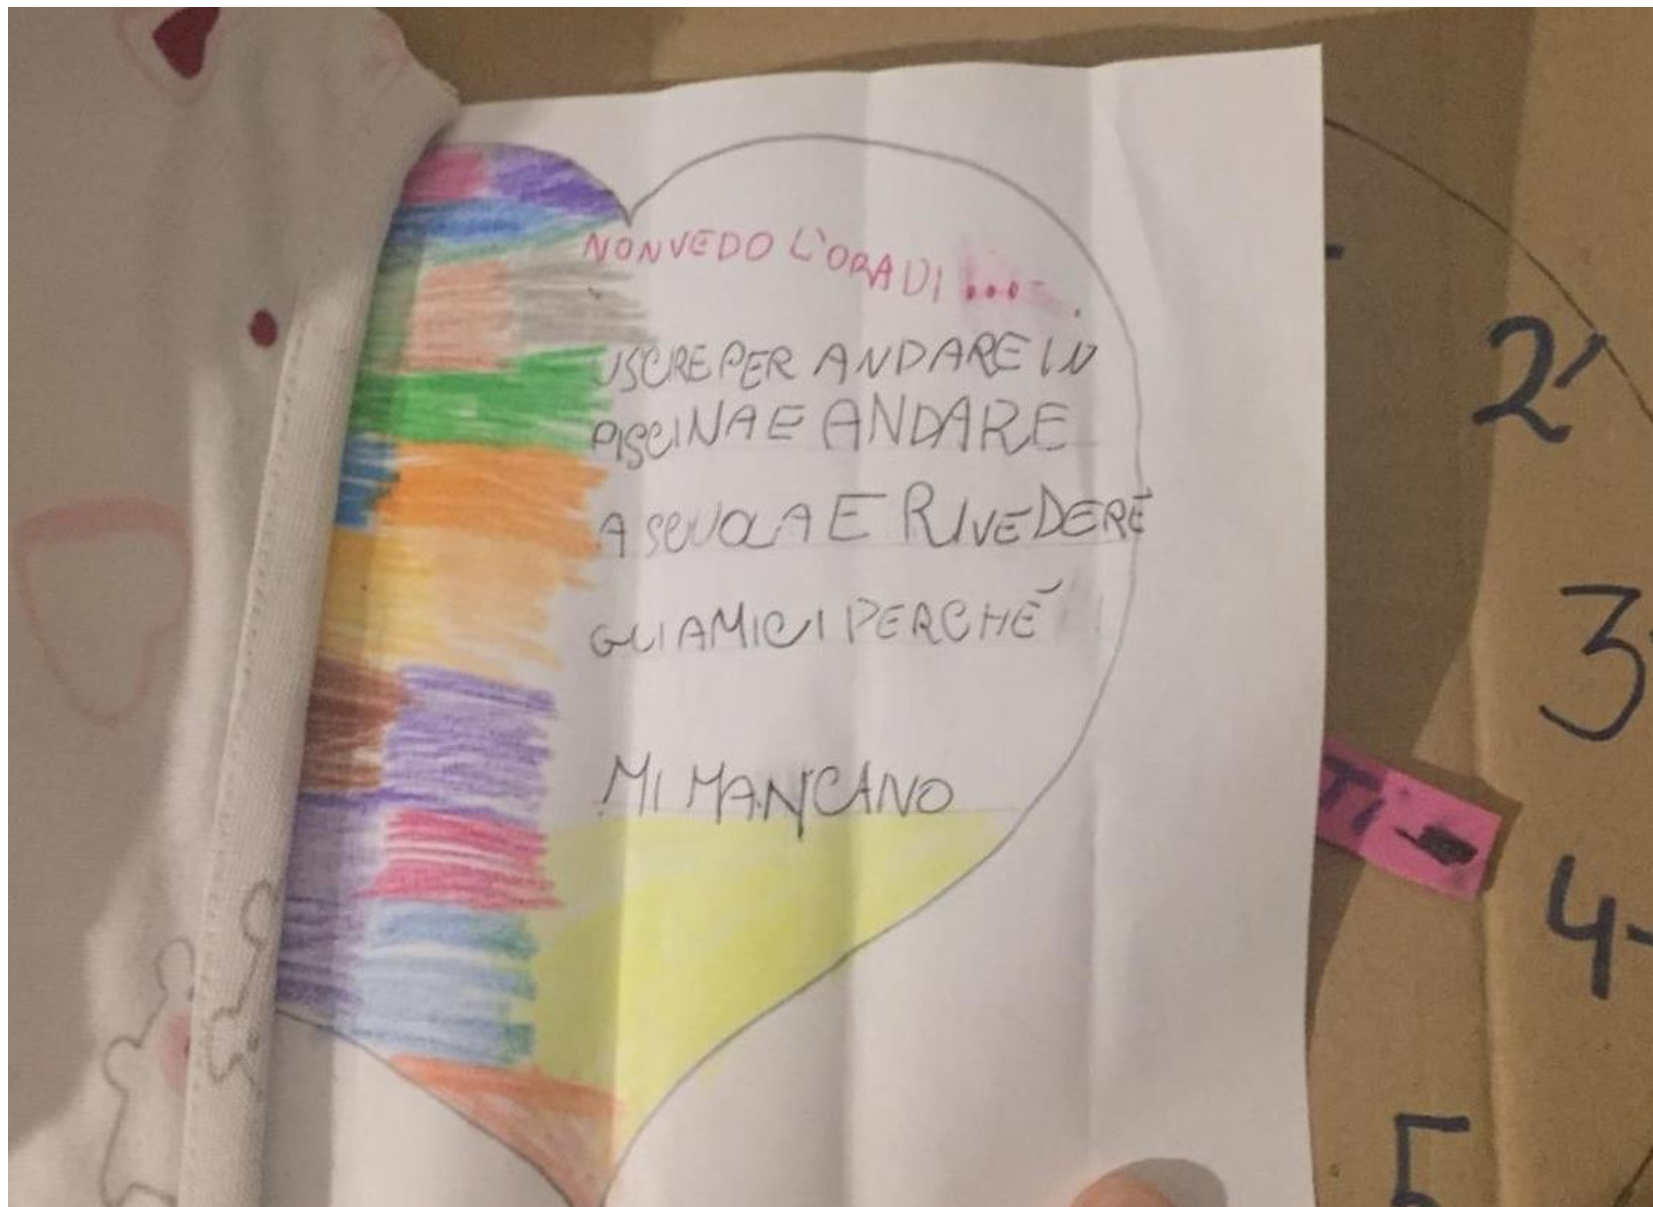 NON VEDO L'ORA DI ....
USCRE PER ANDARE IN
PISCINA E ANDARE
A SCUOLA E RIVEDERE
GLI AMICI PERCHÉ
MI MANCANO
2
3
TI -
4-
5